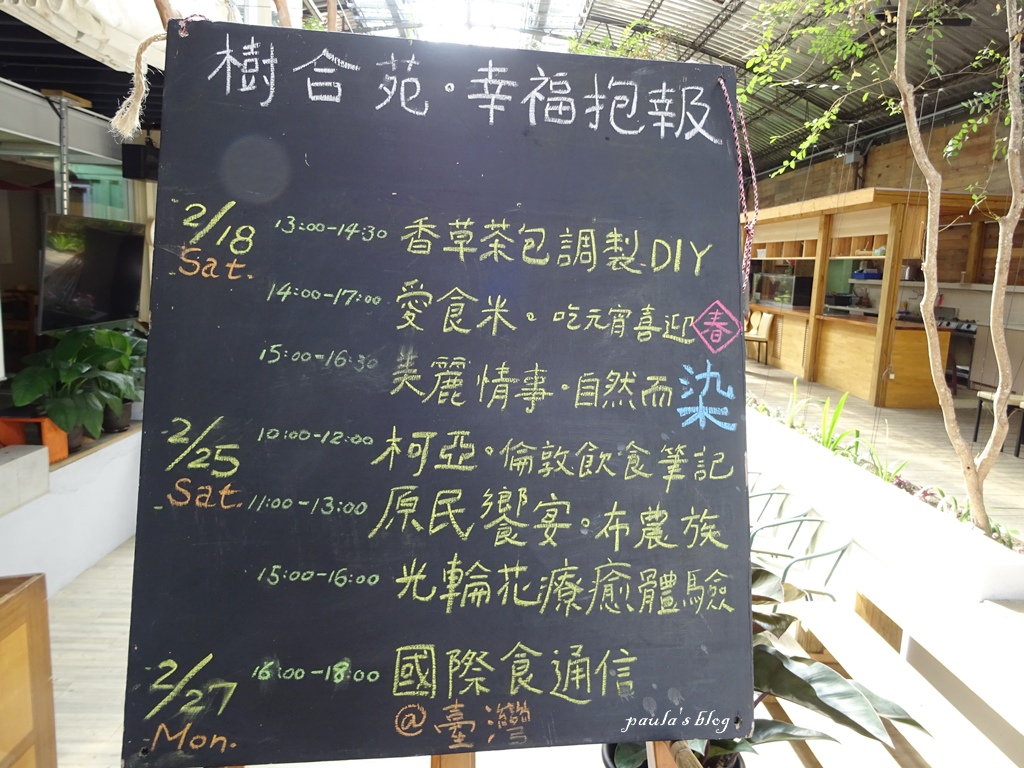 樹合苑·幸福抱報
2/18 13:00-14:30 香草茶包調製DIY
Sat.
14:00-17:00 愛食米。吃元宵喜迎春
15:00-16:30 美麗情事·自然而染
2/25 10:00-12:00 柯亞·倫敦飲食筆記
Sat. 11:00-13:00 原民饗宴。布農族
15:00-16:00 光輪花療癒體驗
2/27 16:00-18:00 國際食通信
Mon. @臺灣
paula's blog